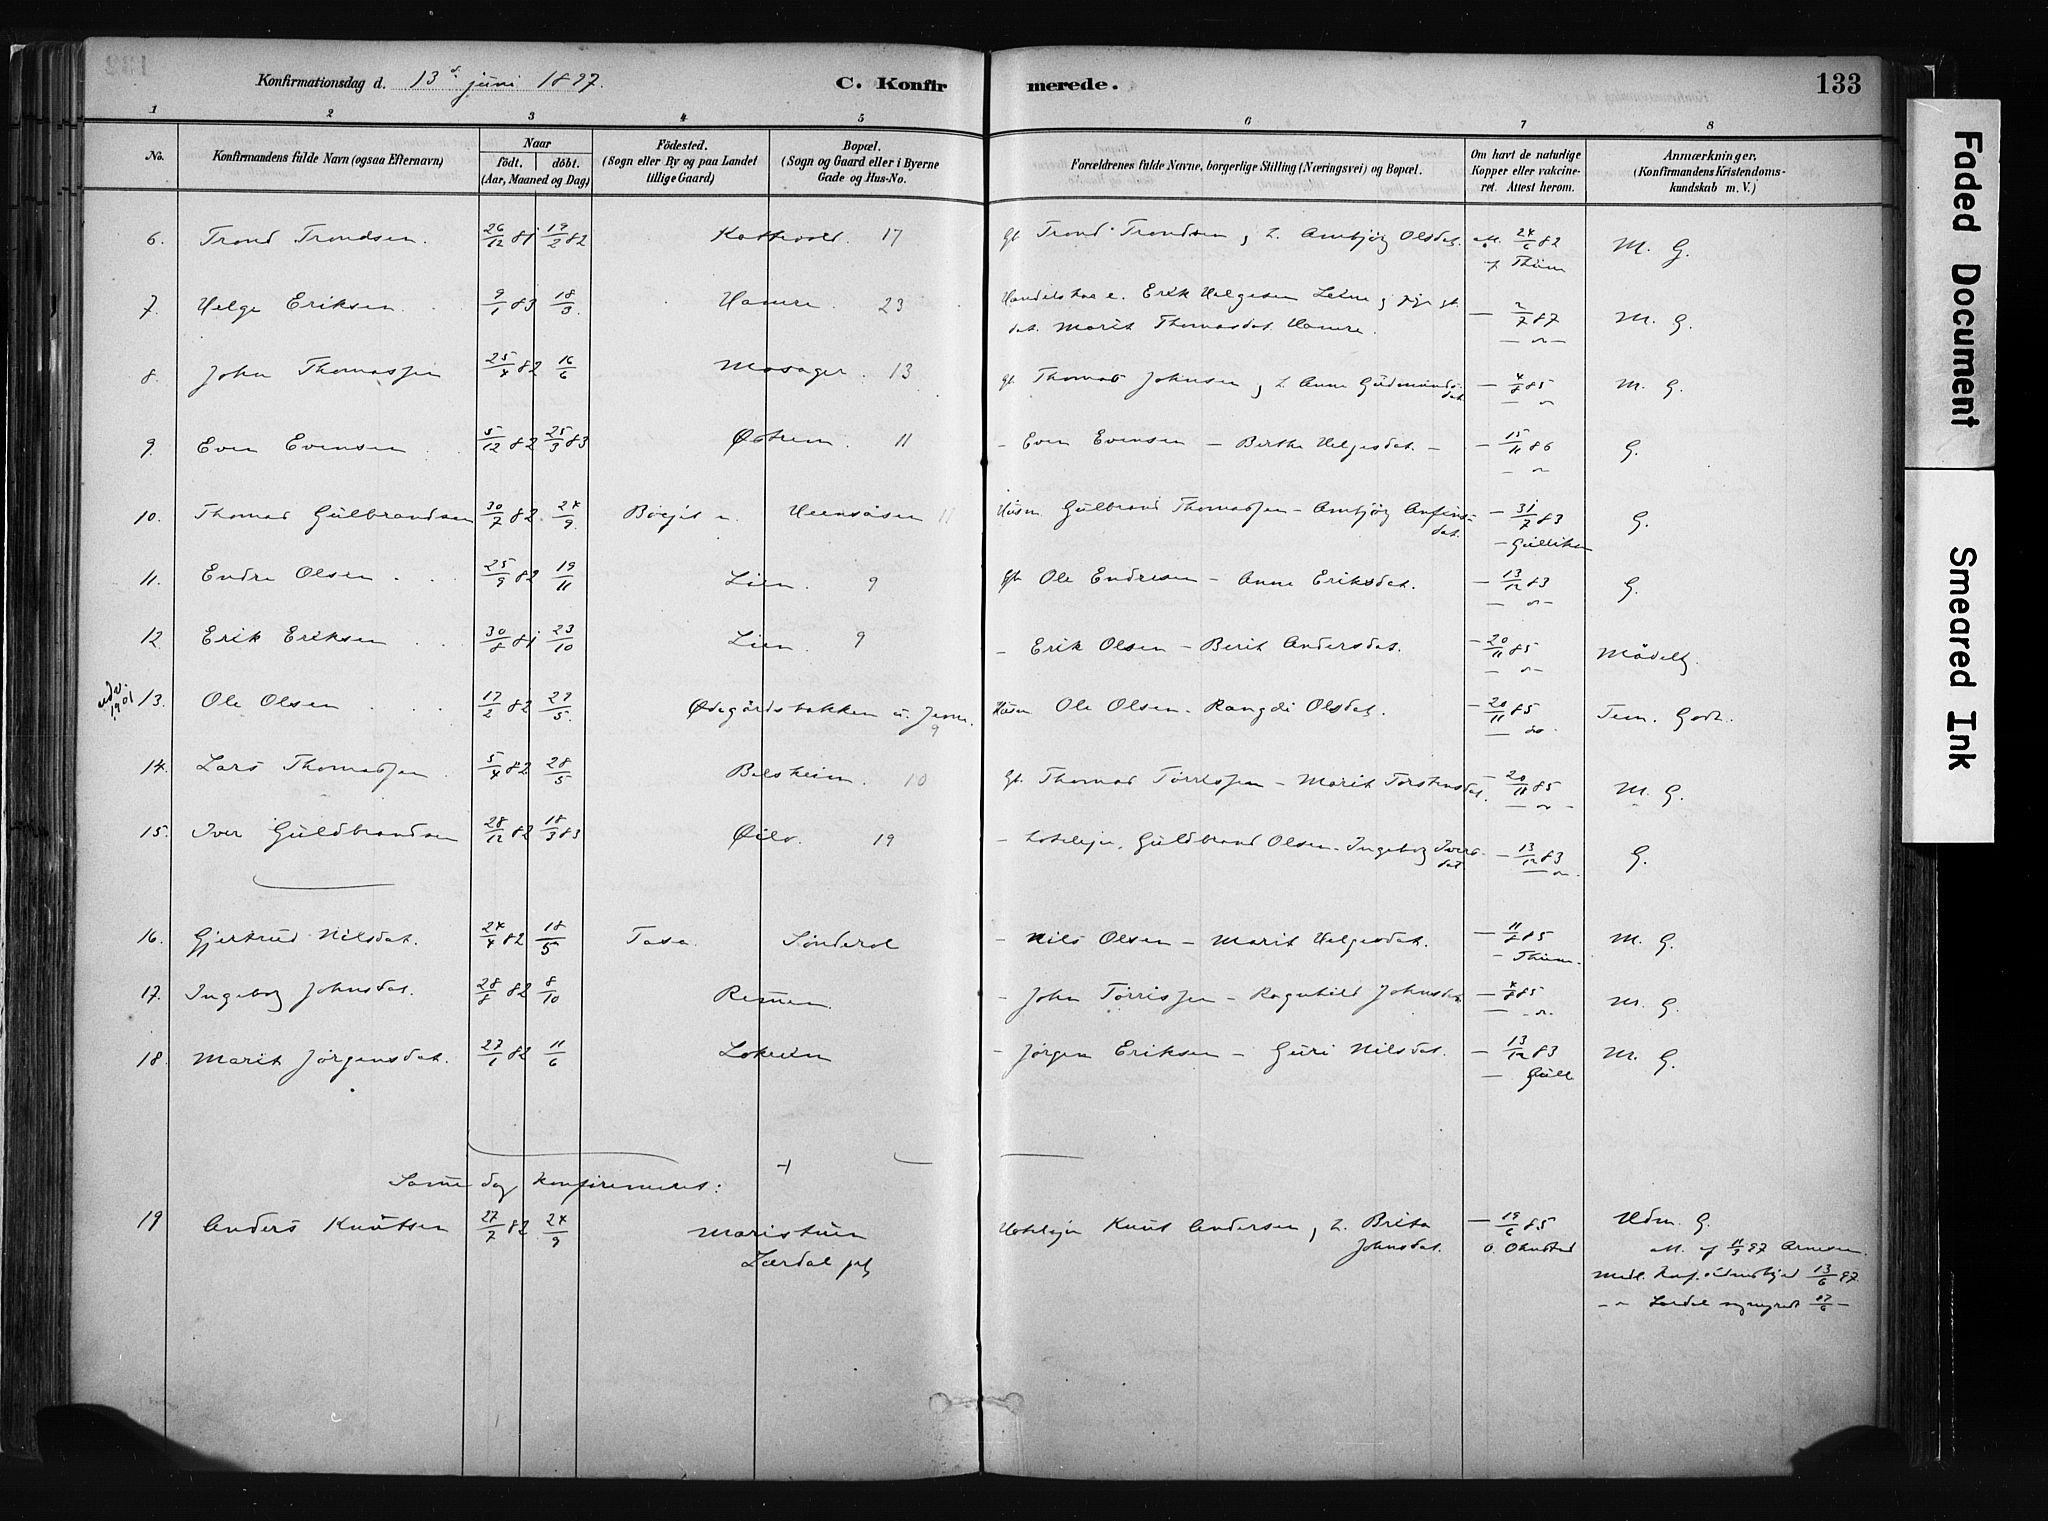 Konfirmationsdag d. 13d juni 1897. C. Konfirmerede. 133
1 2 3 4 5 6 7 8
No. Konfirmandens fulde Navn (ogsaa Efternavn) Naar født. døbt. (Aar, Maaned og Dag) Fødested. (Sogn eller By og paa Landet tillige Gaard) Bopæl. (Sogn og Gaard eller i Byerne Gade og Hus-No. Forældrenes fulde Navne, borgerlige Stilling (Næringsvei) og Bopæl. Om havt de naturlige Kopper eller vakcineret. Attest herom. Anmærkninger. (Konfirmandens Kristendomskundskab m. V.)
6. Trond Trondsen. 26/12 81 19/2 82 17 Gb. Trond Trondsen, h. Ambjørg Olsdat. 24/6 82 M. G.
7. Helge Eriksen 9/1 83 18/3. Hamre. 23 Erik Helgesen Leine dat. Marit Thomasdat. Hamre. /7 87 M. G.
8. John Thomassen 25/4 82 16/6 Mosager. 13 Gb. Thomas Johnsen, h. Anne Gudmundsdat. 4/8 85 M. G.
9. Even Evensen 5/12 82 25/3 83 Østrem. 11 - Even Evensen - Berthe Helgesdat. - 15/11 86 G.
10. Thomas Gulbrandsen 30/7 82 24/9. Heensåsen 11 Husm. Gulbrand Thomassen - Ambjørg Anfinsdat. 31/7 83 - Gulliksen G.
11. Endre Olsen 25/9 82 19/11 Lien. 9 Gb. Ole Endresen - Anne Eriksdat. 13/12 83 G.
12. Erik Eriksen 30/8 81 23/10 Lien. 9 - Erik Olsen - Berit Andersdat. 20/11 85 Mådelg.
udv. 1901 13. Ole Olsen 17/2 82 27/5. Ødegårdsbakken u. 9 Husm. Ole Olsen - Rangdi Olsdat. 20/11 85 Tem. Godt.
14. Lars Thomassen 5/4 82 28/5 Belsheim. 10 Gb. Thomas Torrissen - Marit Torstensdat. 20/11 85 M. G.
15. Iver Guldbrandsen 28/12 82 18/3 83 Øilo. 19 Guldbrand Olsen - Ingeborg Iversdat. 13/12 83 G.
16. Gjertrud Nilsdat. 24/4 82 18/5 Sønderol - Nils Olsen - Marit Helgesdat. 11/8 85 M. G.
17. Ingeborg Johnsdat. 28/8 82 8/10 Remen. - John Torrissen - Ragnhild Johnsdat. 4/8 85 M. G.
18. Marit Jørgensdat. 27/1 82 11/6 - Jørgen Eriksen - Guri Nilsdat. 13/12 83 - Gull M. G.
Samme dag konfirmeret:
19 Anders Knutsen 27/7 82 24/9 Maristuen Lærdal pgj Knut Andersen, h. Brita Johnsdat. - 19/6 85 O. Olmstad Udm. G.
13/6 97.
Faded Document
Smeared Ink